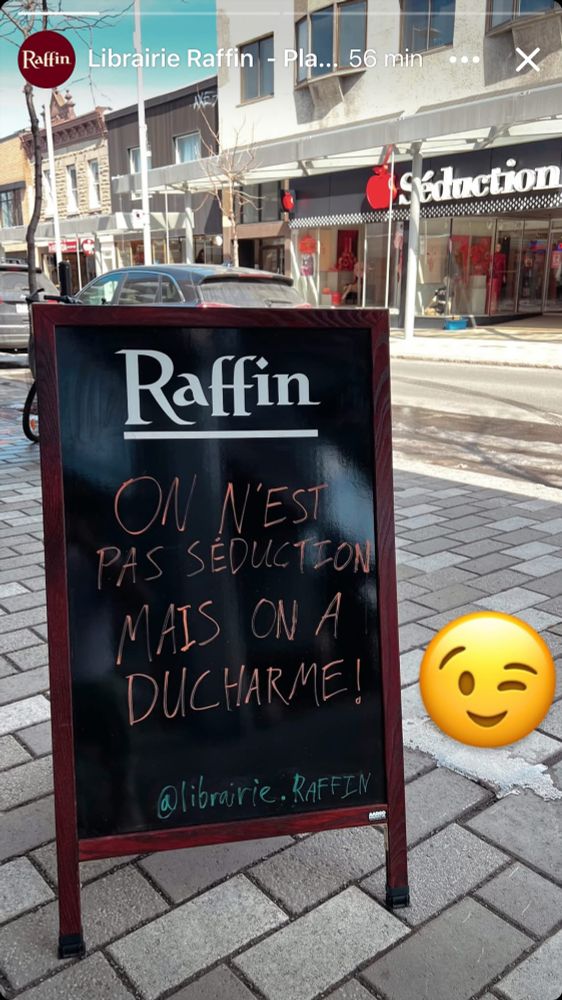 Raffin
Librairie Raffin - Pla... 56 min
Séduction
Raffin
ON N'EST
PAS SÉDUCTION
MAIS ON A
DUCHARME!
@librairie.RAFFIN